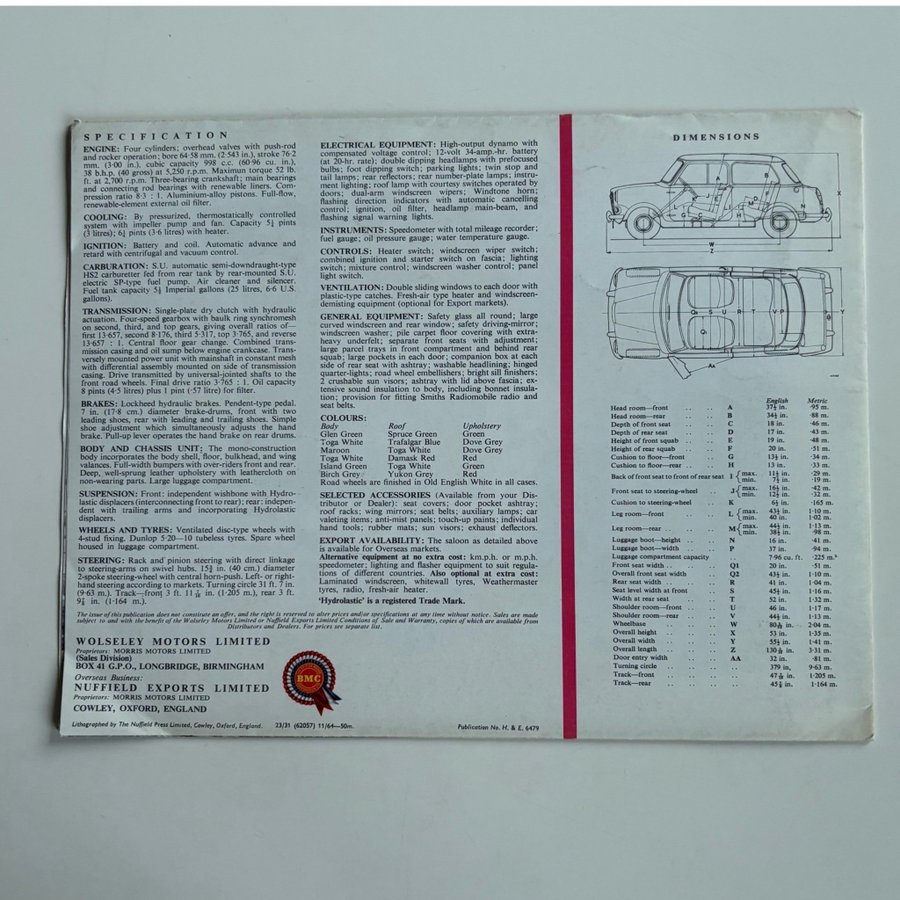 SPECIFICATION
ENGINE: Four cylinders; overhead valves with push-rod
and rocker operation; bore 64·58 mm. (2·543 in.), stroke 76·2
mm. (3·00 in.), cubic capacity 998 c.c. (60·96 cu. in.),
38 b.h.p. (40 gross) at 5,250 r.p.m. Maximun torque 52 lb.
ft. at 2,700 r.p.m. Three-bearing crankshaft; main bearings
and connecting rod bearings with renewable liners. Com-
pression ratio 8·3 : 1. Aluminium-alloy pistons. Full-flow,
renewable-element external oil filter.
COOLING: By pressurized, thermostatically controlled
system with impeller pump and fan. Capacity 5¼ pints
(3 litres); 6¼ pints (3·6 litres) with heater.
IGNITION: Battery and coil. Automatic advance and
retard with centrifugal and vacuum control.
CARBURATION: S.U. automatic semi-downdraught-type
HS2 carburetter fed from rear tank by rear-mounted S.U.
electric SP-type fuel pump. Air cleaner and silencer.
Fuel tank capacity 5½ Imperial gallons (25 litres, 6·6 U.S.
gallons).
TRANSMISSION: Single-plate dry clutch with hydraulic
actuation. Four-speed gearbox with baulk ring synchromesh
on second, third, and top gears, giving overall ratios of—
first 13·657, second 8·176, third 5·317, top 3·765, and reverse
13·657 : 1. Central floor gear change. Combined trans-
mission casing and oil sump below engine crankcase. Trans-
versely mounted power unit with mainshaft in constant mesh
with differential assembly mounted on side of transmission
casing. Drive transmitted by universal-jointed shafts to the
front road wheels. Final drive ratio 3·765 : 1. Oil capacity
8 pints (4·5 litres) plus 1 pint (·57 litre) for filter.
BRAKES: Lockheed hydraulic brakes. Pendent-type pedal.
7 in. (17·8 cm.) diameter brake-drums, front with two
leading shoes, rear with leading and trailing shoes. Simple
shoe adjustment which simultaneously adjusts the hand
brake. Pull-up lever operates the hand brake on rear drums.
BODY AND CHASSIS UNIT: The mono-construction
body incorporates the body shell, floor, bulkhead, and wing
valances. Full-width bumpers with over-riders front and rear.
Deep, well-sprung leather upholstery with leathercloth on
non-wearing parts. Large luggage compartment.
SUSPENSION: Front: independent wishbone with Hydro-
lastic displacers (interconnecting front to rear); rear: indepen-
dent with trailing arms and incorporating Hydrolastic
displacers.
WHEELS AND TYRES: Ventilated disc-type wheels with
4-stud fixing. Dunlop 5·20—10 tubeless tyres. Spare wheel
housed in luggage compartment.
STEERING: Rack and pinion steering with direct linkage
to steering-arms on swivel hubs. 15¾ in. (40 cm.) diameter
2-spoke steering-wheel with central horn-push. Left- or right-
hand steering according to markets. Turning circle 31 ft. 7 in.
(9·63 m.). Track—front 3 ft. 11 7/16 in. (1·205 m.), rear 3 ft.
9⅞ in. (1·164 m.).
ELECTRICAL EQUIPMENT: High-output dynamo with
compensated voltage control; 12-volt 34-amp.-hr. battery
(at 20-hr. rate); double dipping headlamps with prefocused
bulbs; foot dipping switch; parking lights; twin stop and
tail lamps; rear reflectors; rear number-plate lamps; instru-
ment lighting; roof lamp with courtesy switches operated by
doors; dual-arm windscreen wipers; Windtone horn;
flashing direction indicators with automatic cancelling
control; ignition, oil filter, headlamp main-beam, and
flashing signal warning lights.
INSTRUMENTS: Speedometer with total mileage recorder;
fuel gauge; oil pressure gauge; water temperature gauge.
CONTROLS: Heater switch; windscreen wiper switch;
combined ignition and starter switch on fascia; lighting
switch; mixture control; windscreen washer control; panel
light switch.
VENTILATION: Double sliding windows to each door with
plastic-type catches. Fresh-air type heater and windscreen-
demisting equipment (optional for Export markets).
GENERAL EQUIPMENT: Safety glass all round; large
curved windscreen and rear window; safety driving-mirror;
windscreen washer; pile carpet floor covering with extra-
heavy underfelt; separate front seats with adjustment;
large parcel trays in front compartment and behind rear
squab; large pockets in each door; companion box at each
side of rear seat with ashtray; washable headlining; hinged
quarter-lights; road wheel embellishers; bright sill finishers;
2 crushable sun visors; ashtray with lid above fascia; ex-
tensive sound insulation to body, including bonnet insula-
tion; provision for fitting Smiths Radiomobile radio and
seat belts.
COLOURS:
Body Roof Upholstery
Glen Green Spruce Green Green
Toga White Trafalgar Blue Dove Grey
Maroon Toga White Dove Grey
Toga White Damask Red Red
Island Green Toga White Green
Birch Grey Yukon Grey Red
Road wheels are finished in Old English White in all cases.
SELECTED ACCESSORIES (Available from your Dis-
tributor or Dealer): seat covers; door pocket ashtray;
roof racks; wing mirrors; seat belts; auxiliary lamps; car
valeting items; anti-mist panels; touch-up paints; individual
hand tools; rubber mats; sun visors; exhaust deflectors.
EXPORT AVAILABILITY: The saloon as detailed above
is available for Overseas markets.
Alternative equipment at no extra cost: km.p.h. or m.p.h.
speedometer; lighting and flasher equipment to suit regula-
tions of different countries. Also optional at extra cost:
Laminated windscreen, whitewall tyres, Weathermaster
tyres, radio, fresh-air heater.
'Hydrolastic' is a registered Trade Mark.
The issue of this publication does not constitute an offer, and the right is reserved to alter prices and/or specifications at any time without notice. Sales are made
subject to and with the benefit of the Wolseley Motors Limited or Nuffield Exports Limited Conditions of Sale and Warranty, copies of which are available from
Distributors and Dealers. For prices see separate list.
WOLSELEY MOTORS LIMITED
Proprietors: MORRIS MOTORS LIMITED
(Sales Division)
BOX 41 G.P.O., LONGBRIDGE, BIRMINGHAM
Overseas Business:
NUFFIELD EXPORTS LIMITED
Proprietors: MORRIS MOTORS LIMITED
COWLEY, OXFORD, ENGLAND
BMC
Lithographed by The Nuffield Press Limited, Cowley, Oxford, England. 23/31 (62057) 11/64—50m.
Publication No. H. & E. 6479
DIMENSIONS
English Metric
Head room—front A 37½ in. ·95 m.
Head room—rear B 34½ in. ·88 m.
Depth of front seat C 18 in. ·46 m.
Depth of rear seat D 17 in. ·43 m.
Height of front squab E 19 in. ·48 m.
Height of rear squab F 20 in. ·51 m.
Cushion to floor—front G 13½ in. ·34 m.
Cushion to floor—rear H 13 in. ·33 m.
Back of front seat to front of rear seat I max. 11½ in. ·29 m.
min. 7½ in. ·19 m.
Front seat to steering-wheel J max. 16½ in. ·42 m.
min. 12½ in. ·32 m.
Cushion to steering-wheel K 6½ in. ·165 m.
Leg room—front L max. 43½ in. 1·10 m.
min. 40 in. 1·02 m.
Leg room—rear M max. 44½ in. 1·13 m.
min. 38½ in. ·98 m.
Luggage boot—height N 16 in. ·41 m.
Luggage boot—width P 37 in. ·94 m.
Luggage compartment capacity 7·96 cu. ft. ·225 m.³
Front seat width Q1 20 in. ·51 m.
Overall front seat width Q2 43½ in. 1·10 m.
Rear seat width R 41 in. 1·04 m.
Seat level width at front S 45½ in. 1·16 m.
Width at rear seat T 52 in. 1·32 m.
Shoulder room—front U 46 in. 1·17 m.
Shoulder room—rear V 44½ in. 1·13 m.
Wheelbase W 2·04 m.
Overall height X 53 in. 1·35 m.
Overall width Y 55½ in. 1·41 m.
Overall length Z 3·31 m.
Door entry width AA 32 in. ·81 m.
Turning circle 379 in. 9·63 m.
Track—front 1·205 m.
Track—rear 1·164 m.